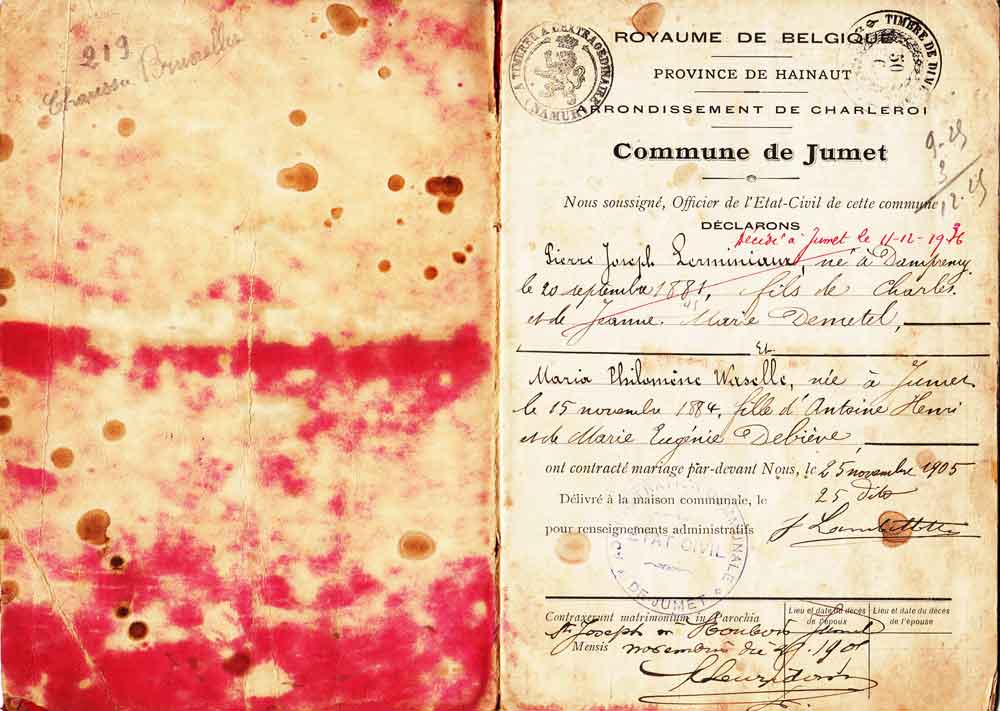 219
Chaussée Bruxelles
A TIMBRER A L'EXTRAORDINAIRE
(NAMUR)
TIMBRE DE DIV
50
C
ROYAUME DE BELGIQUE
PROVINCE DE HAINAUT
ARRONDISSEMENT DE CHARLEROI
Commune de Jumet
9-25
3
12.25
Nous soussigné, Officier de l'Etat-Civil de cette commune
DÉCLARONS
Décédé à Jumet le 11-12-1936
Pierre Joseph Lerminiaux, né à Dampremy
le 20 septembre 1881, fils de Charles
et de Jeanne Marie Demetel,
Et
Maria Philomène Waselle, née à Jumet
le 15 novembre 1884, fille d'Antoine Henri
et de Marie Eugénie Debiève
ont contracté mariage par-devant Nous, le 25 novembre 1905
Délivré à la maison communale, le 25 dito
pour renseignements administratifs
ETAT CIVIL
DE JUMET
Contraxerunt matrimonium in Parochia
St Joseph Jumet
Mensis novembris 1905
Lieu et date du décès de l'époux
Lieu et date du décès de l'épouse